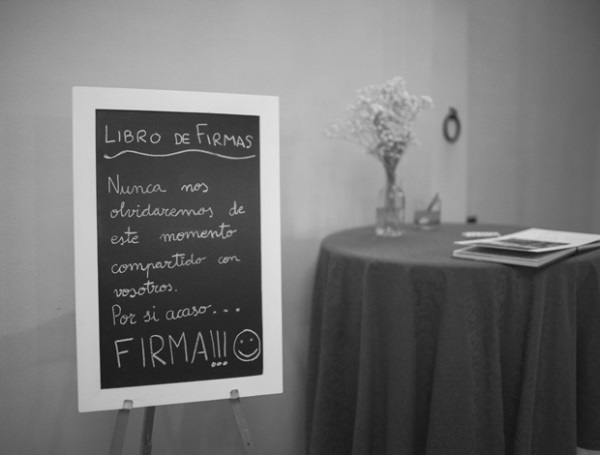 LIBRO DE FIRMAS
Nunca nos
olvidaremos de
este momento
compartido con
vosotros.
Por si acaso...
FIRMA!!!